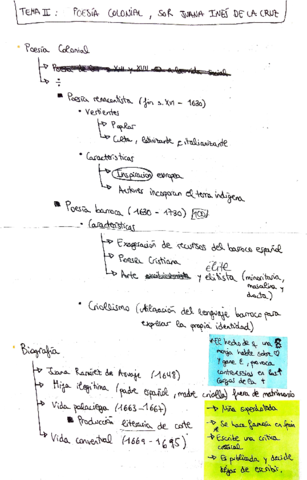 TEMA II: POESÍA COLONIAL, SOR JUANA INÉS DE LA CRUZ
Poesía Colonial
Poesía renacentista (fin s. XVI - 1630)
Vertientes
Popular
Culta, italianizante
Características
Inspiración europea
Autores incorporan el tema indígena
Poesía barroca (1630 - 1730)
Características
Exageración de recursos del barroco español
Poesía Cristiana
Arte y elitista (minoritaria,
masculina y
docta)
Criollismo (utilización del lenguaje barroco para
expresar la propia identidad)
Biografía
Juana Ramírez de (1648)
Hija ilegítima (padre español, madre criolla) fuera de matrimonio
Vida palaciega (1663 - 1667)
Producción literaria de corte
Vida conventual (1669 - 1695)
El hecho de q una
monja hable sobre
y gane €, provoca
controversias en los
cargos de la
Niña superdotada
Se hace famosa en
Escribe una crítica
Es publicada y decide
dejar de escribir.